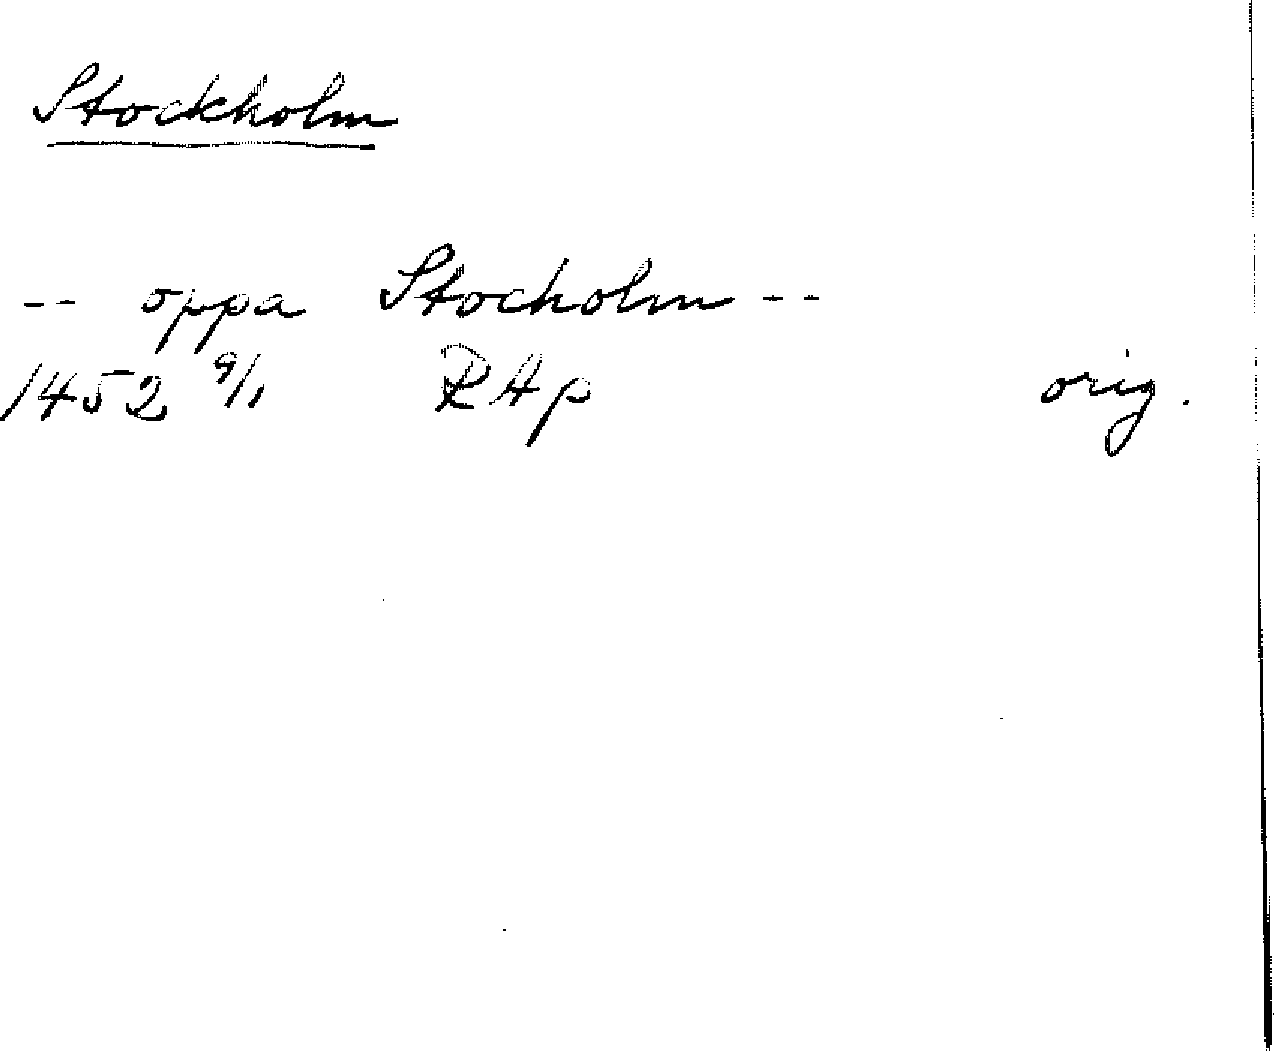 Stockholm
-- oppa Stocholm --
1452 9/1 RAp orig.